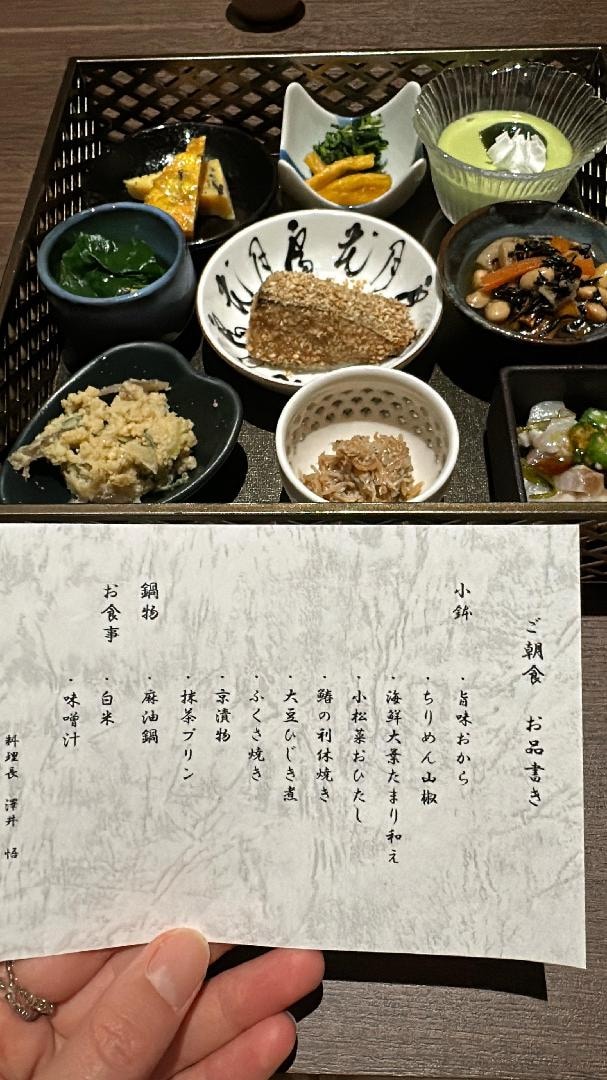 ご朝食 お品書き
小鉢
・旨味おから
・ちりめん山椒
・海鮮大葉たまり和え
・小松菜おひたし
・鰆の利休焼き
・大豆ひじき煮
・ふくさ焼き
・京漬物
・抹茶プリン
鍋物
・麻油鍋
お食事
・白米
・味噌汁
料理長 澤井 悟
花 鳥 花 月